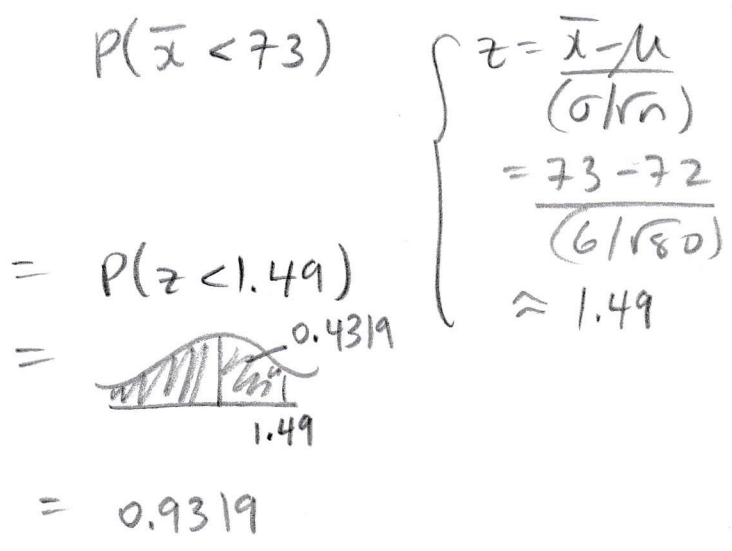 P(x̄ < 73)
= P(z < 1.49)
= 0.4319
1.49
= 0.9319
z = x̄ - μ
(σ/√n)
= 73 - 72
(6/√80)
≈ 1.49